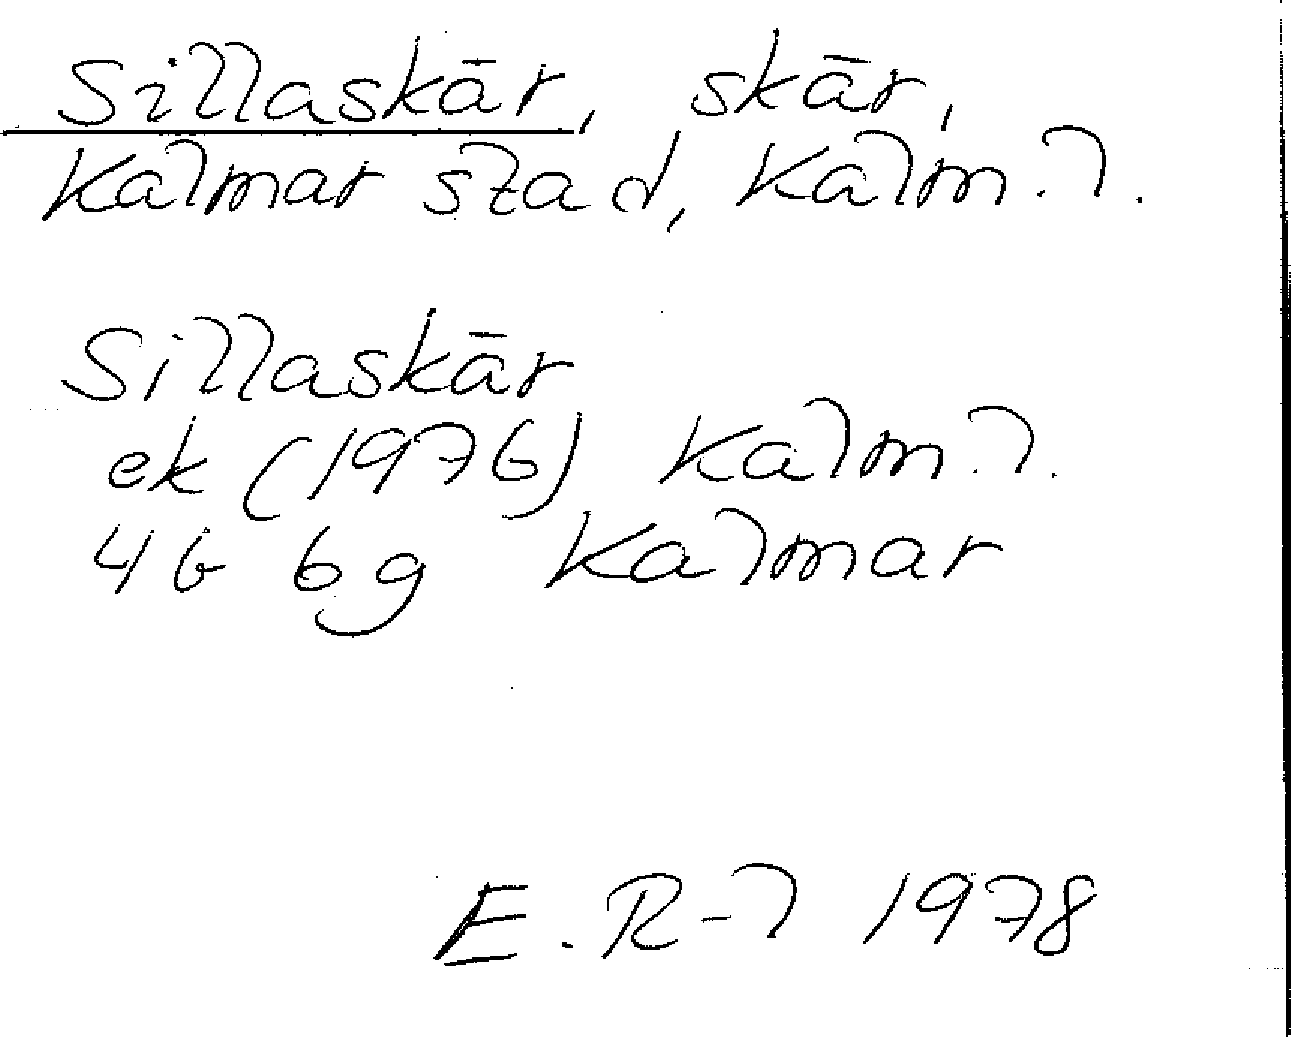 Sillaskär, skär,
Kalmar stad, Kalm. l.
Sillaskär
ek (1976) Kalm. l.
4G 6g Kalmar
E. R-l 1978